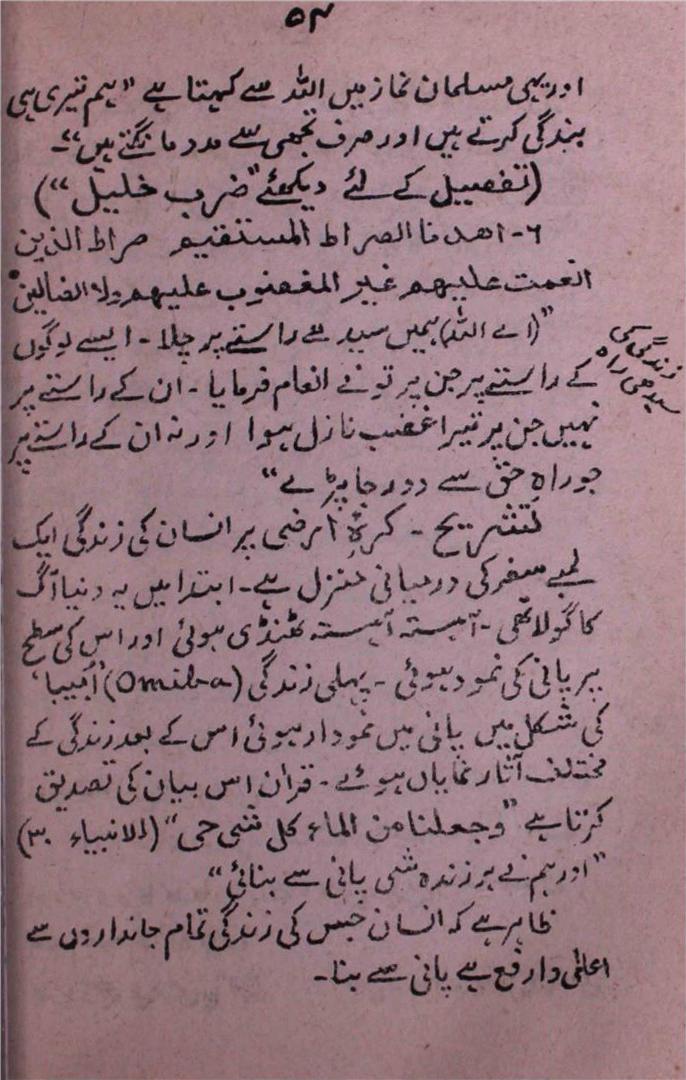 ۵۴
اور یہی مسلمان نماز میں اللہ سے کہتا ہے "ہم تیری ہی
بندگی کرتے ہیں اور صرف تجھی سے مدد مانگتے ہیں"۔
(تفصیل کے لئے دیکھئے "ضرب خلیل")
۶- اھدنا الصراط المستقیم صراط الذین
انعمت علیہم غیر المغضوب علیہم ولا الضالین
"(اے اللہ) ہمیں سیدھے راستے پر چلا - ایسے لوگوں
زندگی کی
سیدھی راہ
کے راستے پر جن پر تو نے انعام فرمایا - ان کے راستے پر
نہیں جن پر تیرا غضب نازل ہوا اور نہ ان کے راستے پر
جو راہِ حق سے دور جا پڑے"
تشریح - کرۂ ارضی پر انسان کی زندگی ایک
لمبے سفر کی درمیانی منزل ہے - ابتدا میں یہ دنیا آگ
کا گولا تھی - آہستہ آہستہ ٹھنڈی ہوئی اور اس کی سطح
پر پانی کی نمود ہوئی - پہلی زندگی (Omiba) 'امیبا'
کی شکل میں پانی میں نمودار ہوئی اس کے بعد زندگی کے
مختلف آثار نمایاں ہوئے - قرآن اس بیان کی تصدیق
کرتا ہے "وجعلنا من الماء کل شیی حی" (الانبیاء ۳۰)
"اور ہم نے ہر زندہ شی پانی سے بنائی"
ظاہر ہے کہ انسان جس کی زندگی تمام جانداروں سے
اعلیٰ وارفع ہے پانی سے بنا -